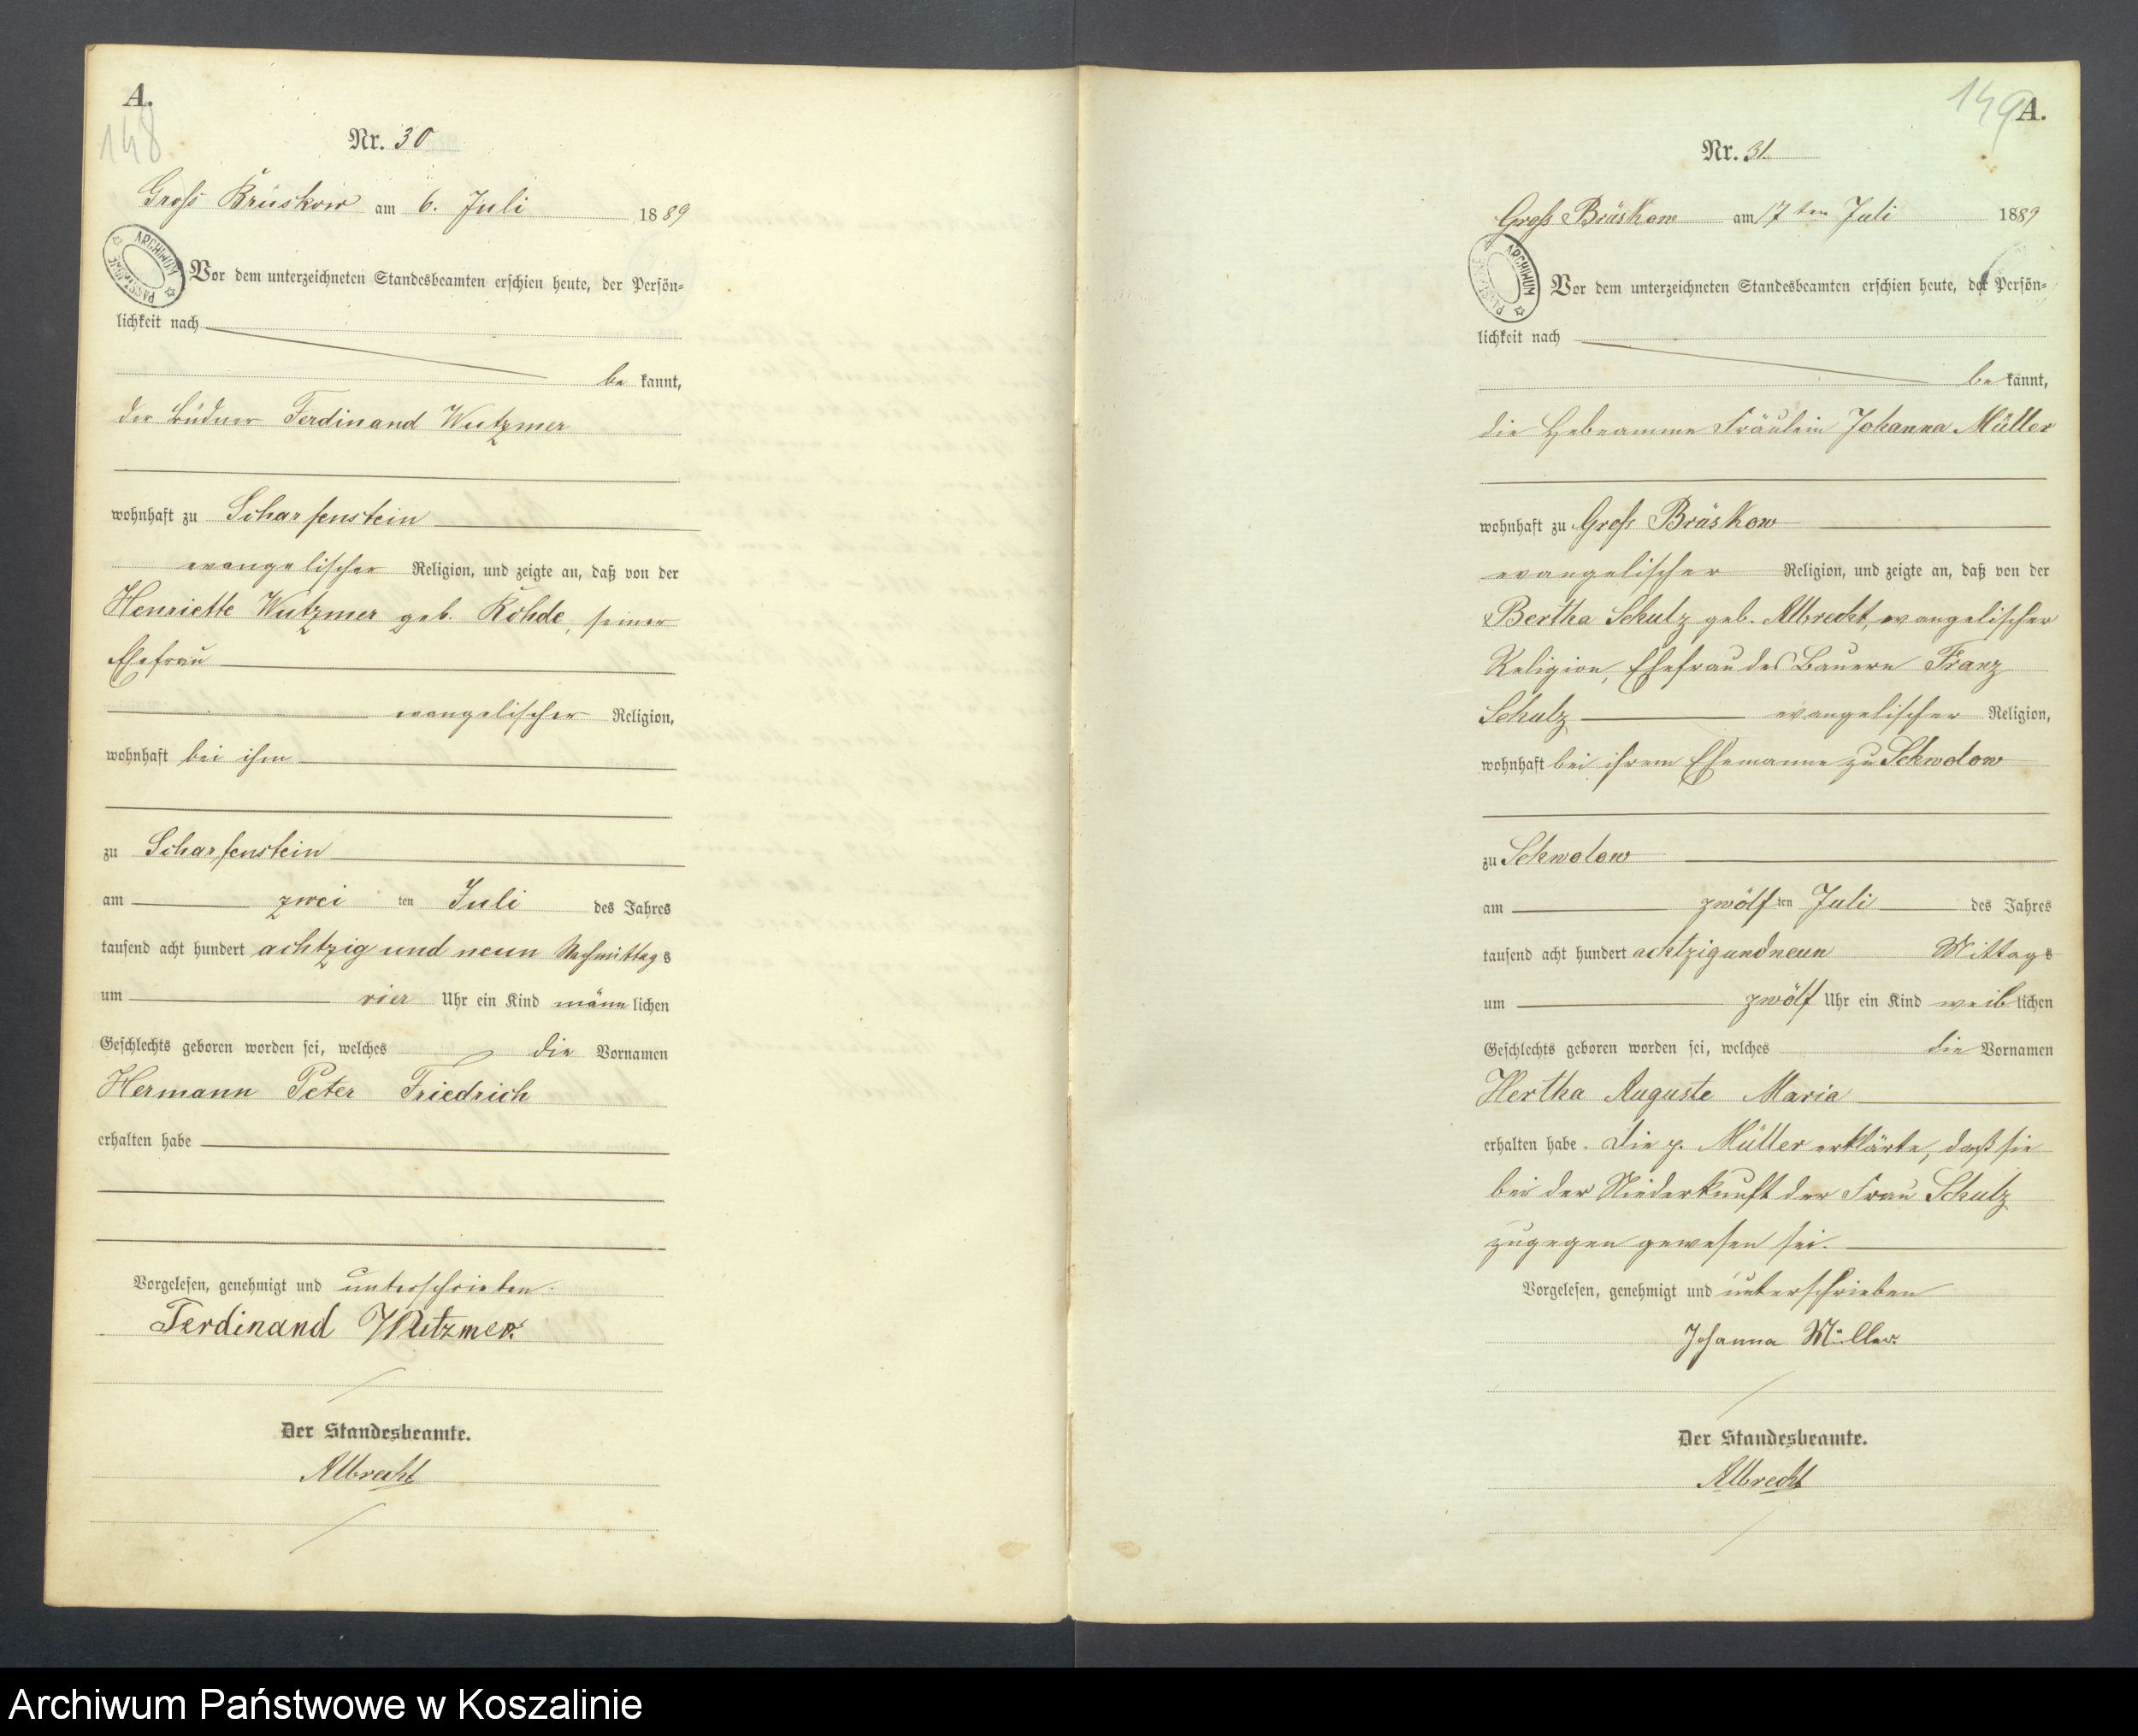 A.
148
Nr. 30
Groß Brüskow am 6. Juli 1889
ARCHIWUM PAŃSTWOWE
Vor dem unterzeichneten Standesbeamten erschien heute, der Persön-
lichkeit nach
be kannt,
der Büdner Ferdinand Wutzmer
wohnhaft zu Scharfenstein
evangelischer Religion, und zeigte an, daß von der
Henriette Wutzmer geb. Rohde, seiner
Ehefrau
evangelischer Religion,
wohnhaft bei ihm
zu Scharfenstein
am zwei ten Juli des Jahres
tausend acht hundert achtzig und neun Nachmittags
um vier Uhr ein Kind männlichen
Geschlechts geboren worden sei, welches die Vornamen
Hermann Peter Friedrich
erhalten habe
Vorgelesen, genehmigt und unterschrieben.
Ferdinand Wutzmer.
Der Standesbeamte.
Albrecht
149
A.
Nr. 31.
Groß Brüskow am 17ten Juli 1889
ARCHIWUM PAŃSTWOWE
Vor dem unterzeichneten Standesbeamten erschien heute, der Persön-
lichkeit nach
be kannt,
die Hebeamme Fräulein Johanna Müller
wohnhaft zu Groß Brüskow
evangelischer Religion, und zeigte an, daß von der
Bertha Schulz geb. Albrecht, evangelischer
Religion, Ehefrau des Bauern Franz
Schulz evangelischer Religion,
wohnhaft bei ihrem Ehemanne zu Schwolow
zu Schwolow
am zwölf ten Juli des Jahres
tausend acht hundert achtzigundneun Mittags
um zwölf Uhr ein Kind weiblichen
Geschlechts geboren worden sei, welches die Vornamen
Hertha Auguste Maria
erhalten habe. Die p. Müller erklärte, daß sie
bei der Niederkunft der Frau Schulz
zugegen gewesen sei.
Vorgelesen, genehmigt und unterschrieben
Johanna Müller.
Der Standesbeamte.
Albrecht
Archiwum Państwowe w Koszalinie